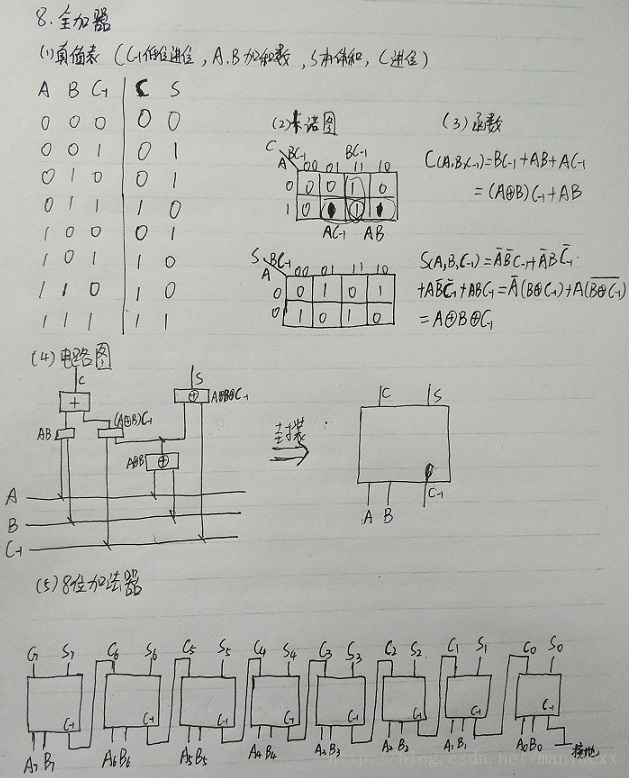 8.全加器
(1)真值表 (C-1低位进位,A.B加和数,S本位和,C进位)
A B C-1 C S
0 0 0 0 0
0 0 1 0 1
0 1 0 0 1
0 1 1 1 0
1 0 0 0 1
1 0 1 1 0
1 1 0 1 0
1 1 1 1 1
(2)卡诺图
C BC-1
A 00 01 11 10
0 0 0 1 0
1 0 1 1 1
BC-1
AC-1 AB
S BC-1
A 00 01 11 10
0 0 1 0 1
0 1 0 1 0
(3)函数
C(A,B,C-1)=BC-1+AB+AC-1
=(A⊕B)C-1+AB
S(A,B,C-1)=ĀB̄C-1+ĀBC̄-1
+AB̄C̄-1+ABC-1=Ā(B⊕C-1)+A(B⊕C-1)
=A⊕B⊕C-1
(4)电路图
C
+
AB
(A⊕B)C-1
A⊕B
⊕
S
⊕
A⊕B⊕C-1
A
B
C-1
封装
C S
A B C-1
(5)8位加法器
C7 S7
A7 B7 C-1
C6 S6
A6 B6 C-1
C5 S5
A5 B5 C-1
C4 S4
A4 B4 C-1
C3 S3
A3 B3 C-1
C2 S2
A2 B2 C-1
C1 S1
A1 B1 C-1
C0 S0
A0 B0 C-1
接地